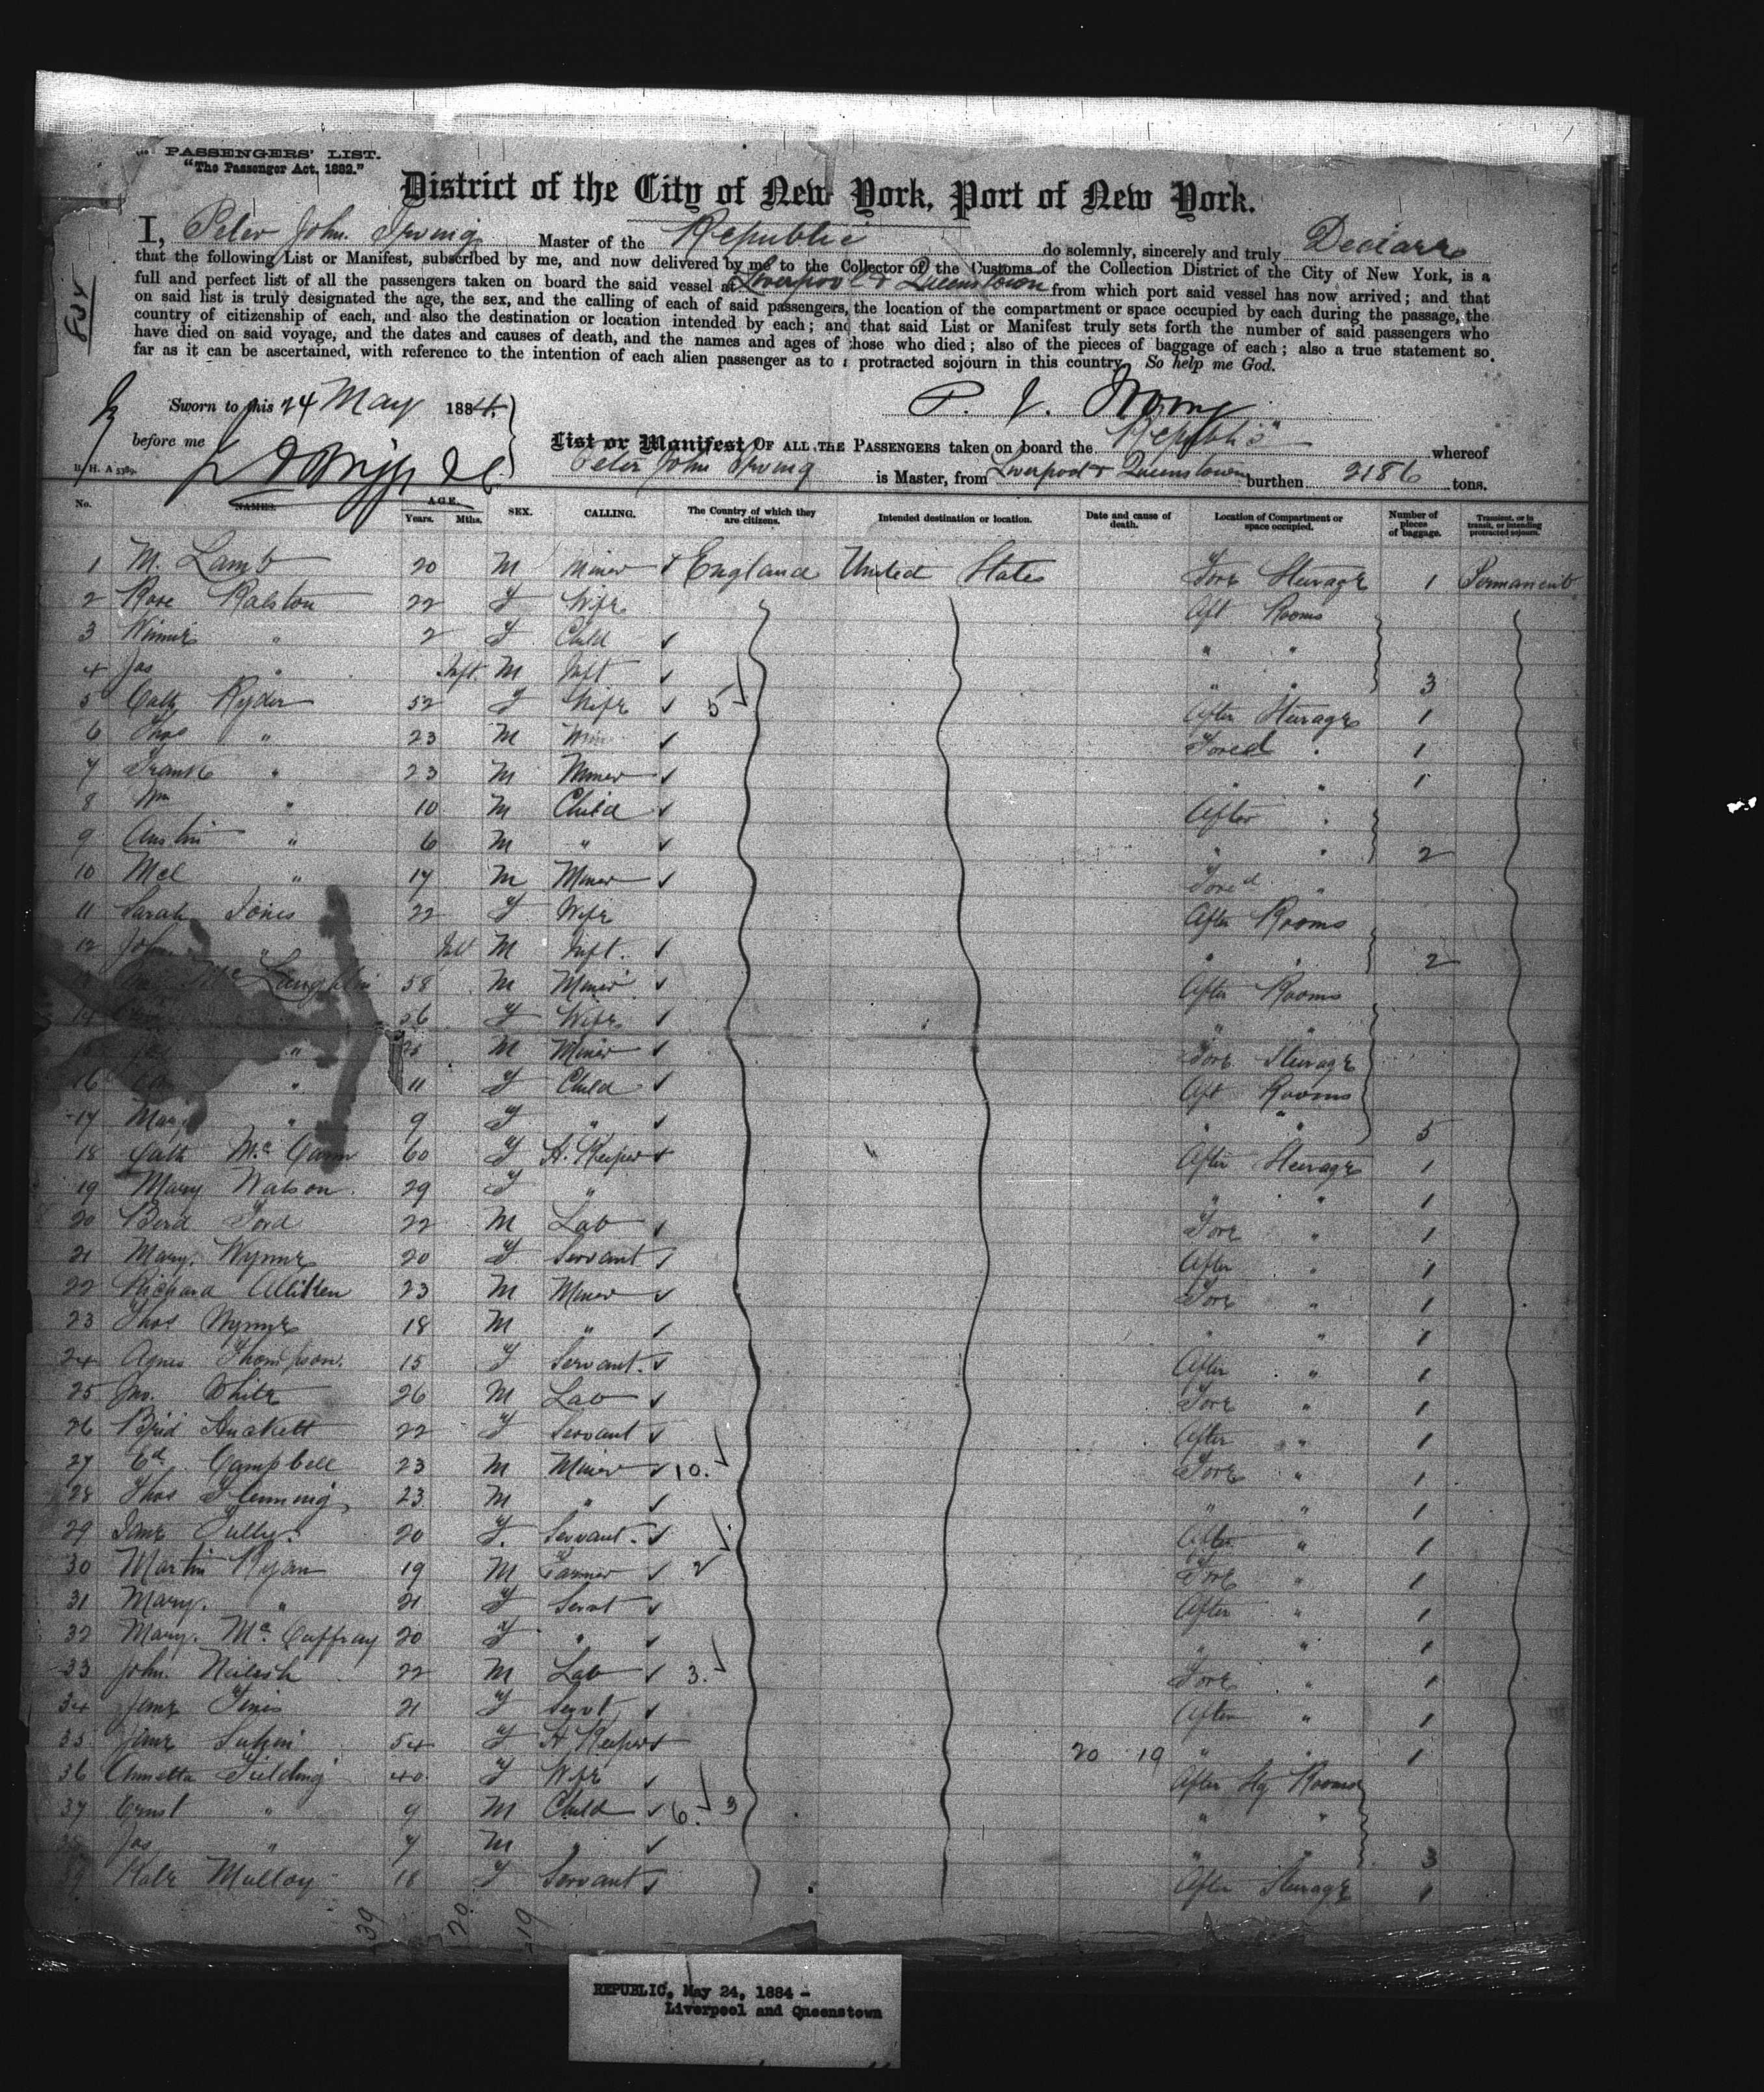 PASSENGERS' LIST.
"The Passenger Act, 1882."
District of the City of New York, Port of New York.
I, Peter John Irving Master of the Republic do solemnly, sincerely and truly Declare
that the following List or Manifest, subscribed by me, and now delivered by me to the Collector of the Customs of the Collection District of the City of New York, is a
full and perfect list of all the passengers taken on board the said vessel at Liverpool & Queenstown from which port said vessel has now arrived; and that
on said list is truly designated the age, the sex, and the calling of each of said passengers, the location of the compartment or space occupied by each during the passage, the
country of citizenship of each, and also the destination or location intended by each; and that said List or Manifest truly sets forth the number of said passengers who
have died on said voyage, and the dates and causes of death, and the names and ages of those who died; also of the pieces of baggage of each; also a true statement so
far as it can be ascertained, with reference to the intention of each alien passenger as to a protracted sojourn in this country. So help me God.
Sworn to this 24 May 1884.
P. J. Irving
before me
List or Manifest OF ALL THE PASSENGERS taken on board the "Republic" whereof
B. H. A 5389.
Peter John Irving is Master, from Liverpool & Queenstown burthen 2186 tons.
No. NAMES. AGE. Years. Mths. SEX. CALLING. The Country of which they are citizens. Intended destination or location. Date and cause of death. Location of Compartment or space occupied. Number of pieces of baggage. Transient, or in transit, or intending protracted sojourn.
1 M. Lamb 20 M Miner England United States Fore Steerage 1 Permanent
2 Rose Ralston 22 F Wife Aft Rooms
3 Winnie " 2 F Child " "
4 Jas " Inft. M Inft " " 3
5 Cath Ryder 52 F Wife 5 After Steerage 1
6 Thos " 23 M Fored " 1
7 Frank " 23 M Miner " " 1
8 Wm " 10 M Child After "
9 Austin " 6 M " " " 2
10 Mcl " 17 M Miner Fored "
11 Sarah Jones 22 F Wife After Rooms
12 John " Inft M Inft. " " 2
McLaughlin 58 M Miner After Rooms
14 56 F Wife " "
15 " M Miner Fore Steerage
16 " 11 F Child Aft Rooms
17 Mary " 9 F " " " 5
18 Cath McCann 60 F H. Keeper After Steerage 1
19 Mary Watson 29 F " " " 1
20 Bernd Ford 22 M Lab Fore " 1
21 Mary Wynne 20 F Servant After " 1
22 Richard 23 M Miner Fore " 1
23 Thos Wynne 18 M " " " 1
24 Agnes Thompson 15 F Servant After " 1
25 Jno. White 26 M Lab Fore " 1
26 Brid Hackett 22 F Servant After " 1
27 Ed. Campbell 23 M Miner 10. Fore " 1
28 Thos Flemming 23 M " " " 1
29 Jane Tully 20 F. Servant After " 1
30 Martin Ryan 19 M Farmer 2 Fore " 1
31 Mary " 21 F Servt After " 1
32 Mary McCaffray 20 F " " " 1
33 John 22 M Lab 3. Fore " 1
34 Jane 21 F Servt After " 1
35 Jane 54 F H Keeper 20 19 " " 1
36 Annetta Fielding 40 F Wife After Stg Rooms
37 Ernst " 9 M Child 6. 3 " "
38 Jas " 7 M " " " 3
39 Kate Mulloy 18 F Servant After Steerage 1
39 20 19
REPUBLIC, May 24, 1884 -
Liverpool and Queenstown